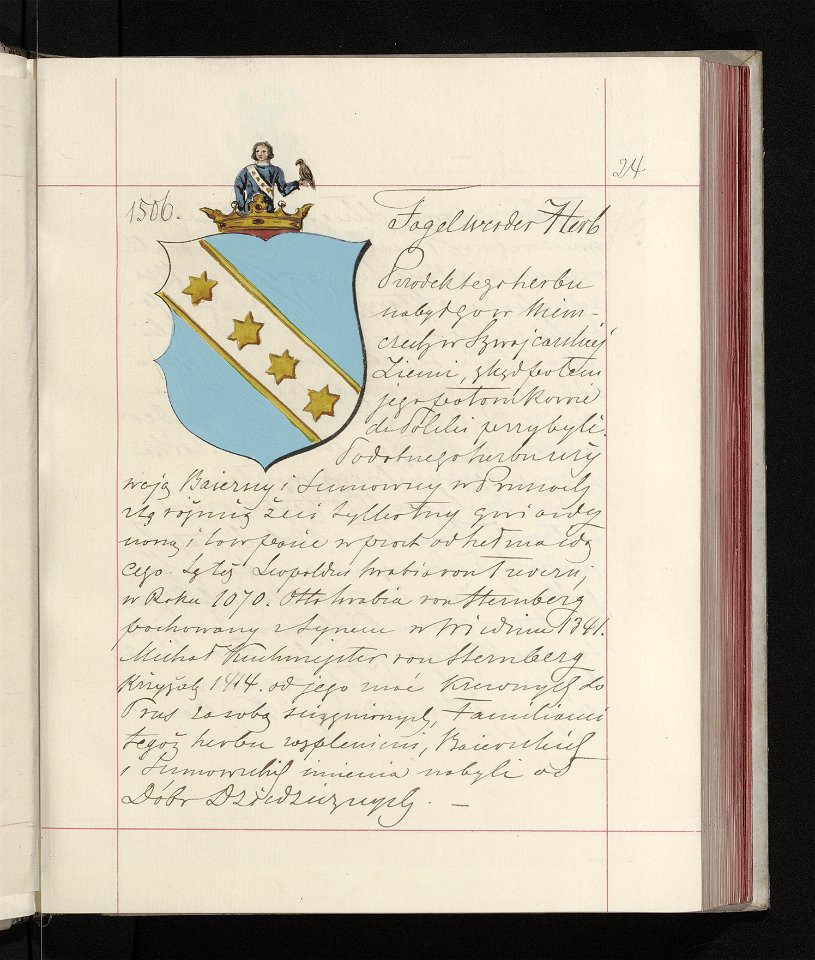 24
1506.
Fogelwerder Herb
Przodek tego herbu
nabył go w Niem-
czech w Szwajcarskiéj
Ziemi, zkąd potem
jego potomkowie
do Polski przybyli.
Podobnego herbu uży
wają Baierscy i Sumowscy w Prusach
z tą różnicą że ci tylko trzy gwiazdy
noszą i to w pasie w prost od hełma idą
cego. Leopoldus hrabia von
w Roku 1070. Otto hrabia von Sternberg
pochowany z Synem w Widniu 1341.
Michał Kuchmejster von Sternberg
Krzyżak 1414. od jego to krewnych do
Prus za sobą ściągnionych, Familiami
tegoż herbu, Baierskich
i Sumowskich imienia nabyli od
Dóbr Dziedzicznych. —